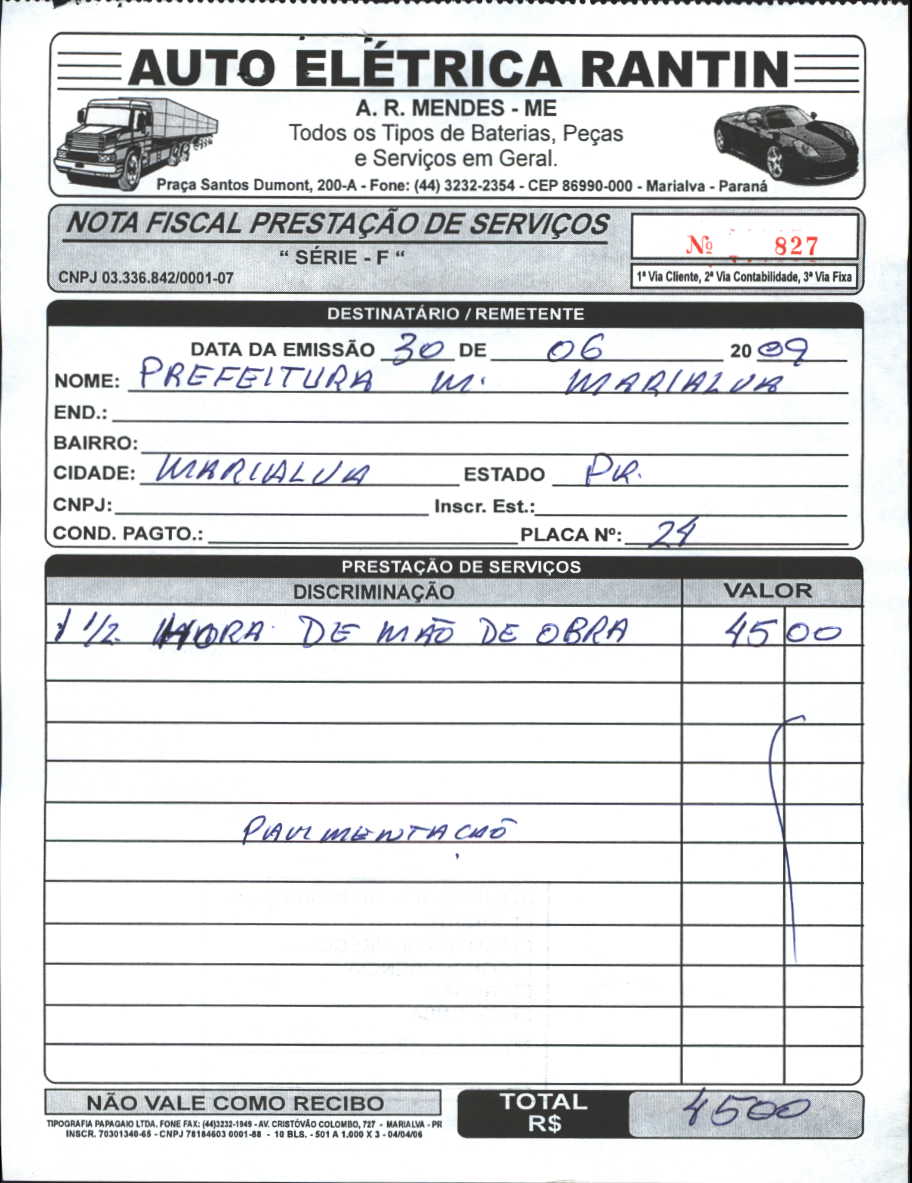 AUTO ELÉTRICA RANTIN
A. R. MENDES - ME
Todos os Tipos de Baterias, Peças
e Serviços em Geral.
Praça Santos Dumont, 200-A - Fone: (44) 3232-2354 - CEP 86990-000 - Marialva - Paraná
NOTA FISCAL PRESTAÇÃO DE SERVIÇOS
“ SÉRIE - F “
CNPJ 03.336.842/0001-07
Nº 827
1ª Via Cliente, 2ª Via Contabilidade, 3ª Via Fixa
DESTINATÁRIO / REMETENTE
DATA DA EMISSÃO 30 DE 06 2009
NOME: PREFEITURA M. MARIALVA
END.:
BAIRRO:
CIDADE: MARIALVA ESTADO PR.
CNPJ: Inscr. Est.:
COND. PAGTO.: PLACA Nº: 24
PRESTAÇÃO DE SERVIÇOS
DISCRIMINAÇÃO VALOR
1 1/2 HORA DE MÃO DE OBRA 45 00
PAVIMENTAÇÃO
NÃO VALE COMO RECIBO
TOTAL R$ 4500
TIPOGRAFIA PAPAGAIO LTDA. FONE FAX: (44)3232-1949 - AV. CRISTÓVÃO COLOMBO, 727 - MARIALVA - PR
INSCR. 70301340-65 - CNPJ 78184603 0001-88 - 10 BLS. - 501 A 1.000 X 3 - 04/04/06